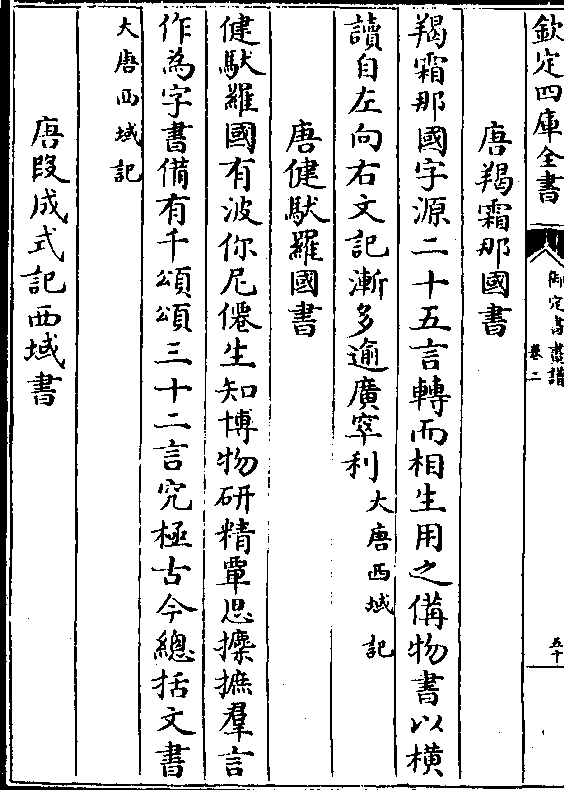 欽定四庫全書
御定書畫譜
卷二
五十
唐羯霜那國書
羯霜那國字源二十五言轉而相生用之備物書以横
讀自左向右文記漸多逾廣窣利大唐西域記
唐健馱羅國書
健馱羅國有波你尼僊生知博物研精覃思㩲摭羣言
作為字書備有千頌頌三十二言究極古今總括文書
大唐西域記
唐段成式記西域書